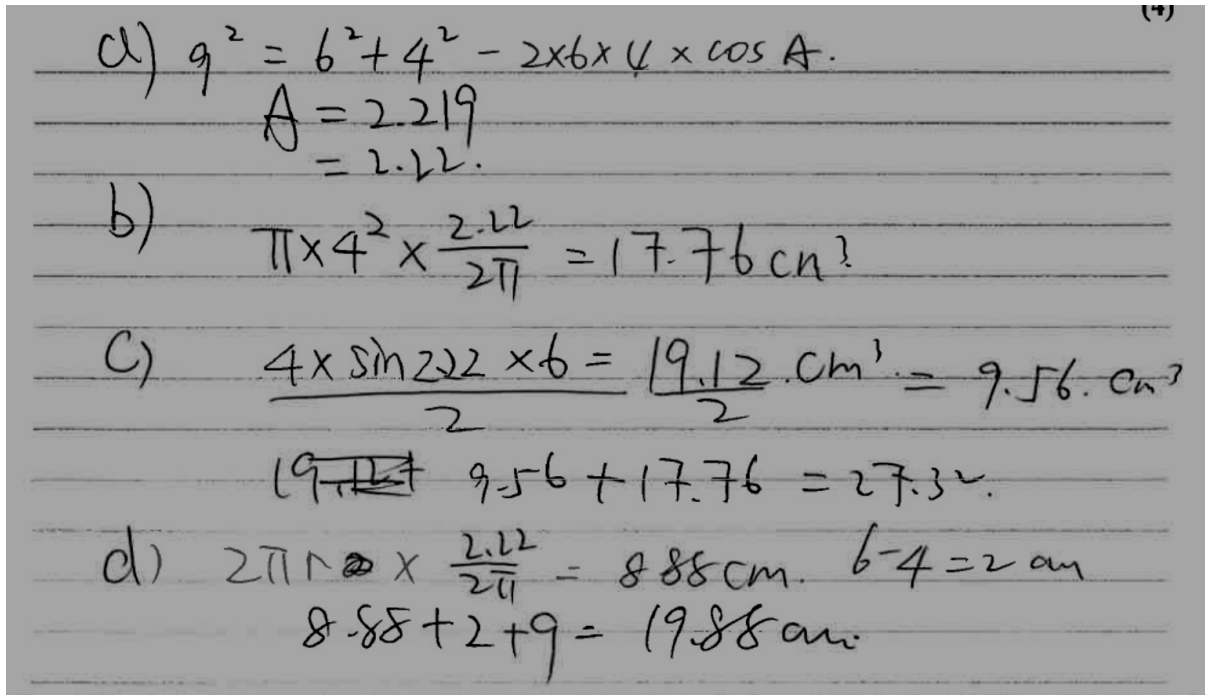 (4)
a) 9² = 6² + 4² - 2×6×4 × cos A.
A = 2.219
= 2.22.
b)
π × 4² × 2.22/2π = 17.76 cm³
c) 4 × sin 2.22 × 6/2 = 19.12/2 cm³ = 9.56. cm³
9.56 + 17.76 = 27.32.
d) 2πr × 2.22/2π = 8.88 cm. 6-4=2 cm
8.88 + 2 + 9 = 19.88 cm.